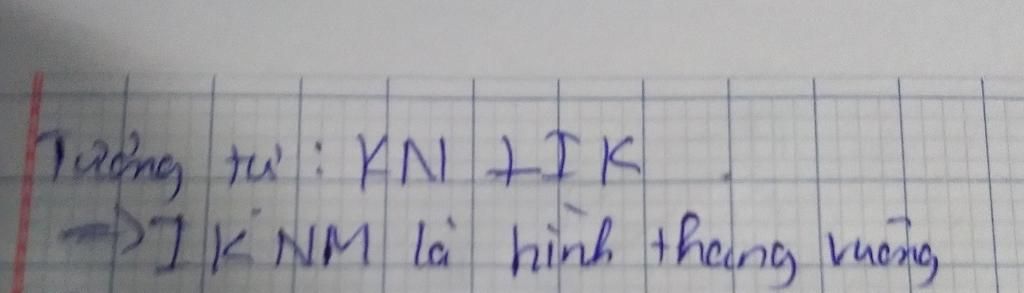 Tương tự : KN ⊥ IK
→ IKNM là hình thang vuông